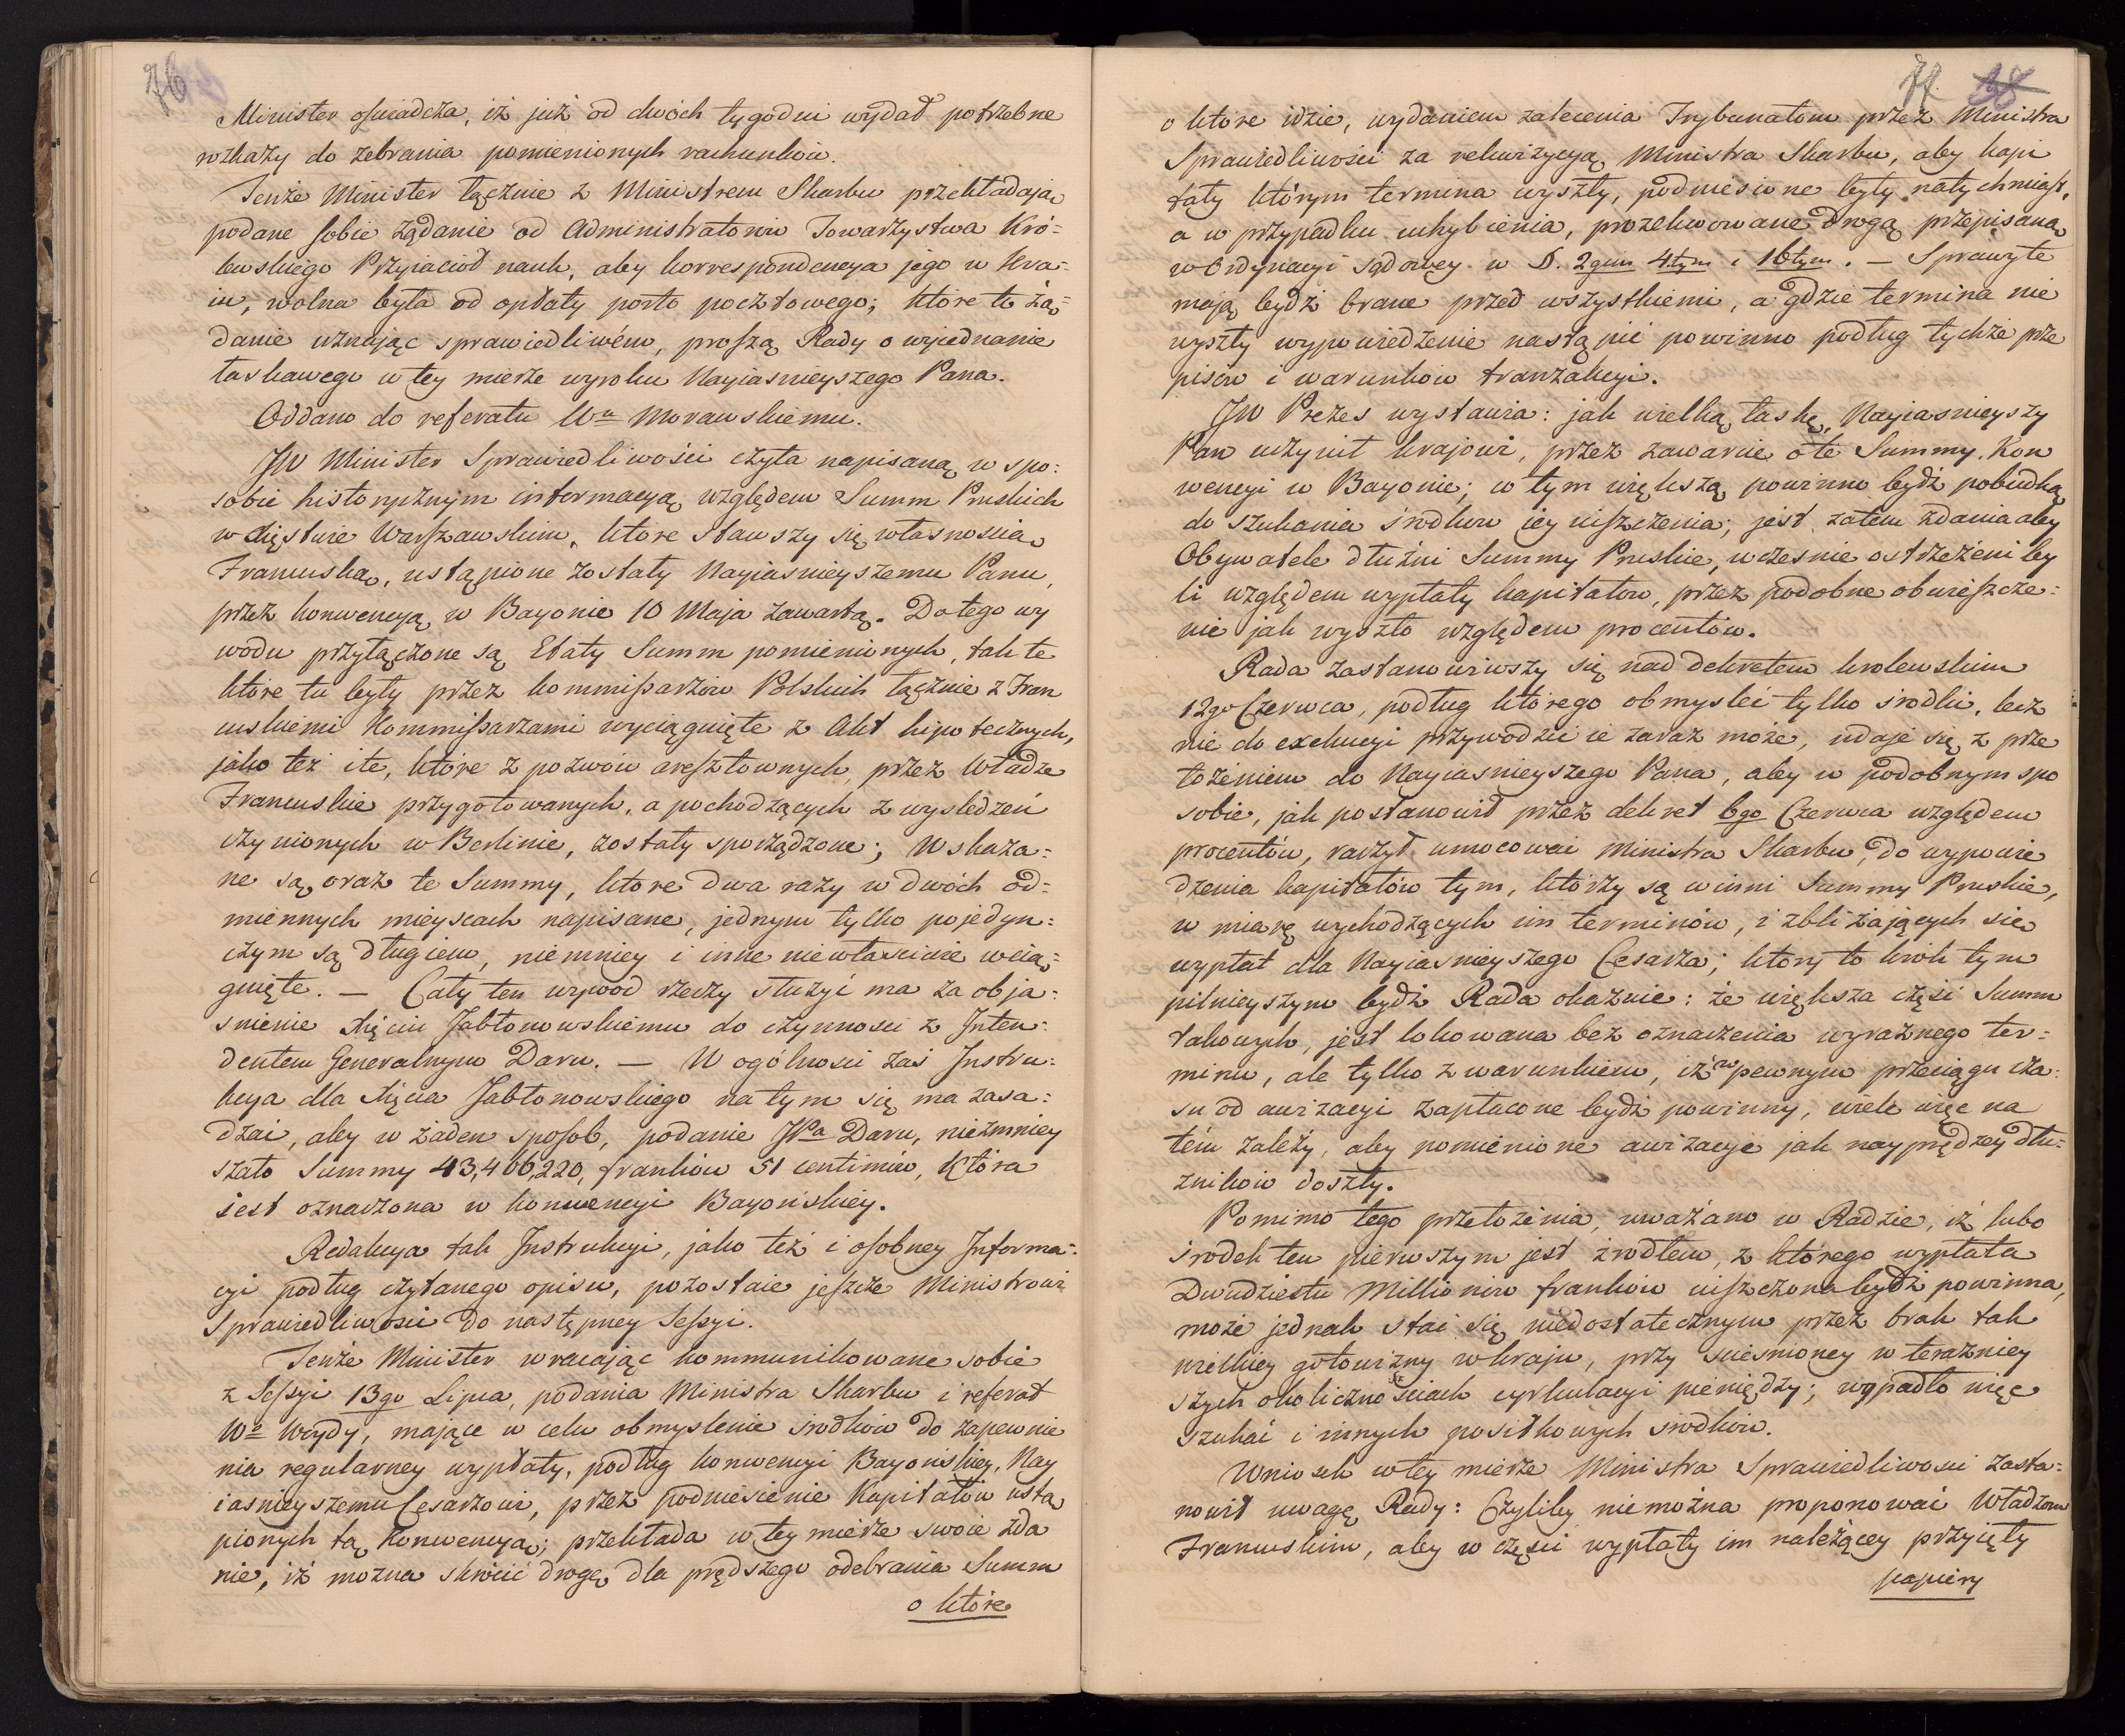 76
Minister ofwiadcza, iż już od dwóch tygodni wydał potrzebne
rozkazy do zebrania pomienionych rachunków.
Tenże Minister łącznie z Ministrem Skarbu przekładają
podane sobie żądanie od Administratorów Towarzystwa Kró-
lewskiego Przyiaciół nauk, aby korrespondencya jego w kra-
iu, wolna była od opłaty porto pocztowego; które to żą-
danie uznając sprawiedliwém, proszą Rady o wyjednanie
łaskawego w tey mierze wyroku Nayiasnieyszego Pana.
Oddano do referatu Wu Morawskiemu.
JW Minister Sprawiedliwości czyta napisaną w spo-
sobie historycznym informacyą względem Summ Pruskich
w Xięstwie Warszawskim, które stawszy się własnoscią
Francuską, ustąpione zostały Nayiasnieyszemu Panu,
przez konwencyą w Bayonie 10 Maja zawartą. Do tego wy
wodu przyłączone są Etaty Summ pomienionych, tak te
które tu były przez kommissarzów Polskich łącznie z Fran
cuskiemi Kommissarzami wyciągnięte z Akt hipotecznych,
jako też i te, które z pozwów aresztownych przez Władze
Francuskie przygotowanych, a pochodzących z wysledzeń
czynionych w Berlinie, zostały sporządzone; Wskaza-
ne są oraz te Summy, ktore dwa razy w dwóch od-
miennych mieyscach napisane, jednym tylko pojedyn-
czym są długiem, niemniey i inne niewłaściwie wcią-
gnięte. — Cały ten wywod rzeczy służyć ma za obja-
snienie Xięciu Jabłonowskiemu do czynnosci z Inten-
dentem Generalnym Daru. — W ogólnosci zaś Instru-
kcya dla Xięcia Jabłonowskiego na tym się ma zasa-
dzać, aby w żaden sposob, podanie JPa Daru, niezmniey
szało Summy 43,466,220, franków 51 centimów, która
iest oznaczona w konwencyi Bayońskiey.
Redakcya tak Instrukcyi, jako też i osobney Informa-
cyi podług czytanego opisu, pozostaie jeszcze Ministrowi
Sprawiedliwości do następney Sessyi.
Tenże Minister wracając kommunikowane sobie
z Sessyi 13go Lipca, podania Ministra Skarbu i referat
Wo Woydy, mające w celu obmyslenie srodków do zapewnie
nia regularney wypłaty, podług konwencyi Bayońskiey, Nay
iasnieyszemu Cesarzowi, przez podniesienie Kapitałów ustą
pionych tą Konwencyą; przekłada w tey mierze swoie zda
nie, iż można skrócić drogę dla prędszego odebrania Summ
o które
77. 38
o które idzie, wydaniem zalecenia Trybunałom przez Ministra
Sprawiedliwości za rekwizycyą Ministra Skarbu, aby kapi
tały którym termina wyszły, podniesione były natychmiast,
a w przypadku uchybienia, prozekwowane drogą przepisaną
w Ordynacyi sądowey w §. 2gim 4tym i 16tym. — Sprawy te
mają bydź brane przed wszystkiemi, a gdzie termina nie
wyszły wypowiedzenie nastąpić powinno podług tychże prze
pisów i warunków tranzakcyi.
JW Prezes wystawia: jak wielką łaskę, Nayiasnieyszy
Pan uczynił krajowi, przez zawarcie o te Summy, Kon
wencyi w Bayonie; w tym większą powinno bydź pobudką
do szukania srodków iey uiszczenia; jest zatem zdania aby
Obywatele dłużni Summy Pruskie, wcześnie ostrzeżeni by
li względem wypłaty kapitałow, przez podobne obwieszcze-
nie jak wyszło względem procentów.
Rada zastanowiwszy się nad dekretem krolewskim
12go Czerwca, podług którego obmysleć tylko środki, lecz
nie do exekucyi przywodzić ie zaraz może, udaje się z prze
łożeniem do Nayiasnieyszego Pana, aby w podobnym spo
sobie, jak postanowił przez dekret 6go Czerwca względem
procentów, raczył umocować Ministra Skarbu, do wypowie
dzenia kapitałów tym, którzy są winni Summy Pruskie,
w miarę wychodzących im terminów, i zbliżających się
wypłat dla Nayiasnieyszego Cesarza; który to krok tym
pilnieyszym bydź Rada okazuie: że większa część Summ
takowych, jest lokowana bez oznaczenia wyraznego ter-
minu, ale tylko z warunkiem, iż w pewnym przeciągu cza-
su od awizacyi zapłacone bydź powinny, wiele więc na
tém zależy, aby pomienione awizacye jak nayprędzey dłu-
znikow doszły.
Pomimo tego przełożenia, uważano w Radzie, iż lubo
środek ten pierwszym jest źrodłem, z którego wypłata
Dwudziestu Millionów franków uiszczona bydź powinna,
może jednak stać się niedostatecznym przez brak tak
wielkiey gotowizny w kraju, przy scieśnioney w teraźniey
szych okolicznościach cyrkulacyi pieniędzy; wypadło więc
szukać i innych posiłkowych srodków.
Wniosek w tey mierze Ministra Sprawiedliwosci zasta-
nowił uwagę Rady: Czyliby niemożna proponować Władzom
Francuskim, aby w części wypłaty im należącey przyięły
papiery